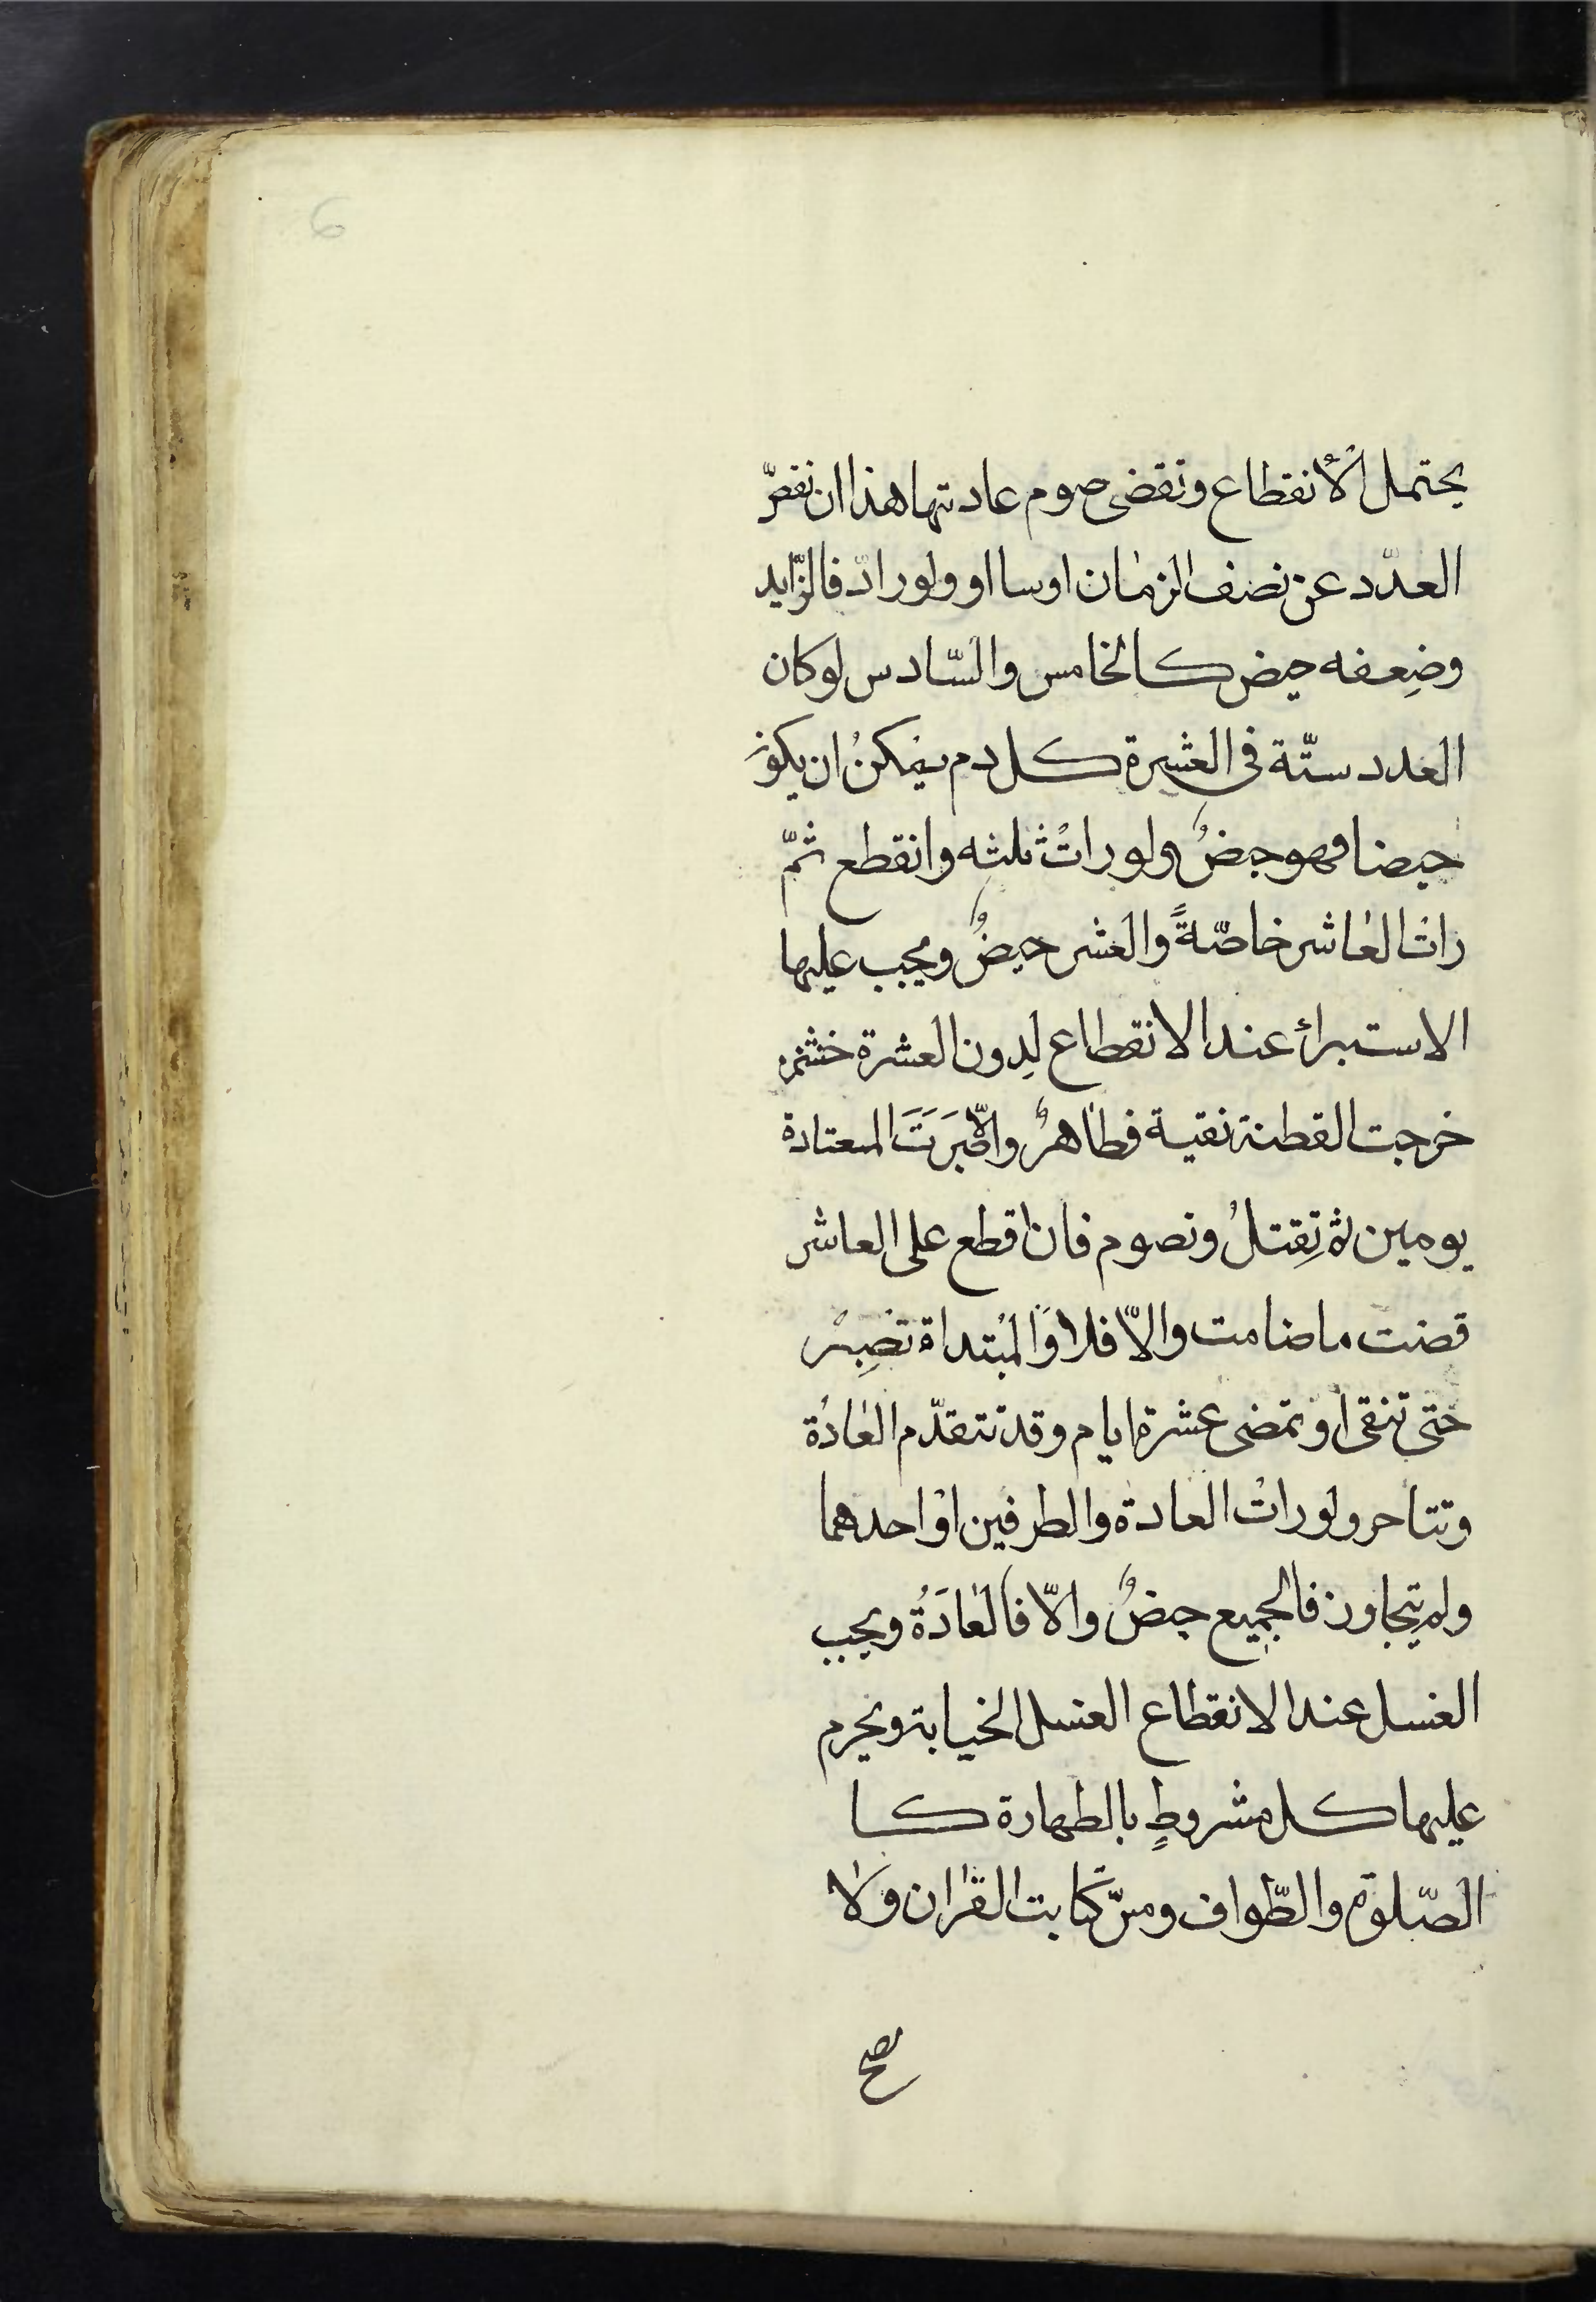 6
يحتمل الأنقطاع وتقضى صوم عادتها هذا ان نقصّ
العدّد عن نصف الزمان اوسا او ولوراد فالزّايد
وضِعفه حيض كالخامس والسّادس لوكان
العدد ستّة فى العشرة كل دم يمكنُ ان يكون
حيضا فهو حيضٌ ولو راتْ ثلثه وانقطع ثمّ
راتْ العاشر خاصّةً والعشر حيضٌ ويجب عليها
الاستبرائ عند الانقطاع لِدون العشرة
خرجت القطنة نقية فطاهرٌ والّا صَبَرَتَ المعتادة
يومين ثم تِقتلُ وتصوم فان اقطع على العاشر
قضت ماضامت والاّ فلا وَالمُبتداة تصِبْر
حتى تنقى او تمضى عشرة ايام وقد تتقدّم العادُة
وتتاحر ولو راتْ العادة والطرفين اوْ احدهما
ولم يتجاوز فالجميع حيضٌ والاّ فالعادَةُ ويجب
الغسل عند الانقطاع العنسل الخيابة ويحرم
عليها كل مشروطٍ بالطهارة كا
الصّلوة والطّواف ومسّ كتابت القرٰان ولا
صح